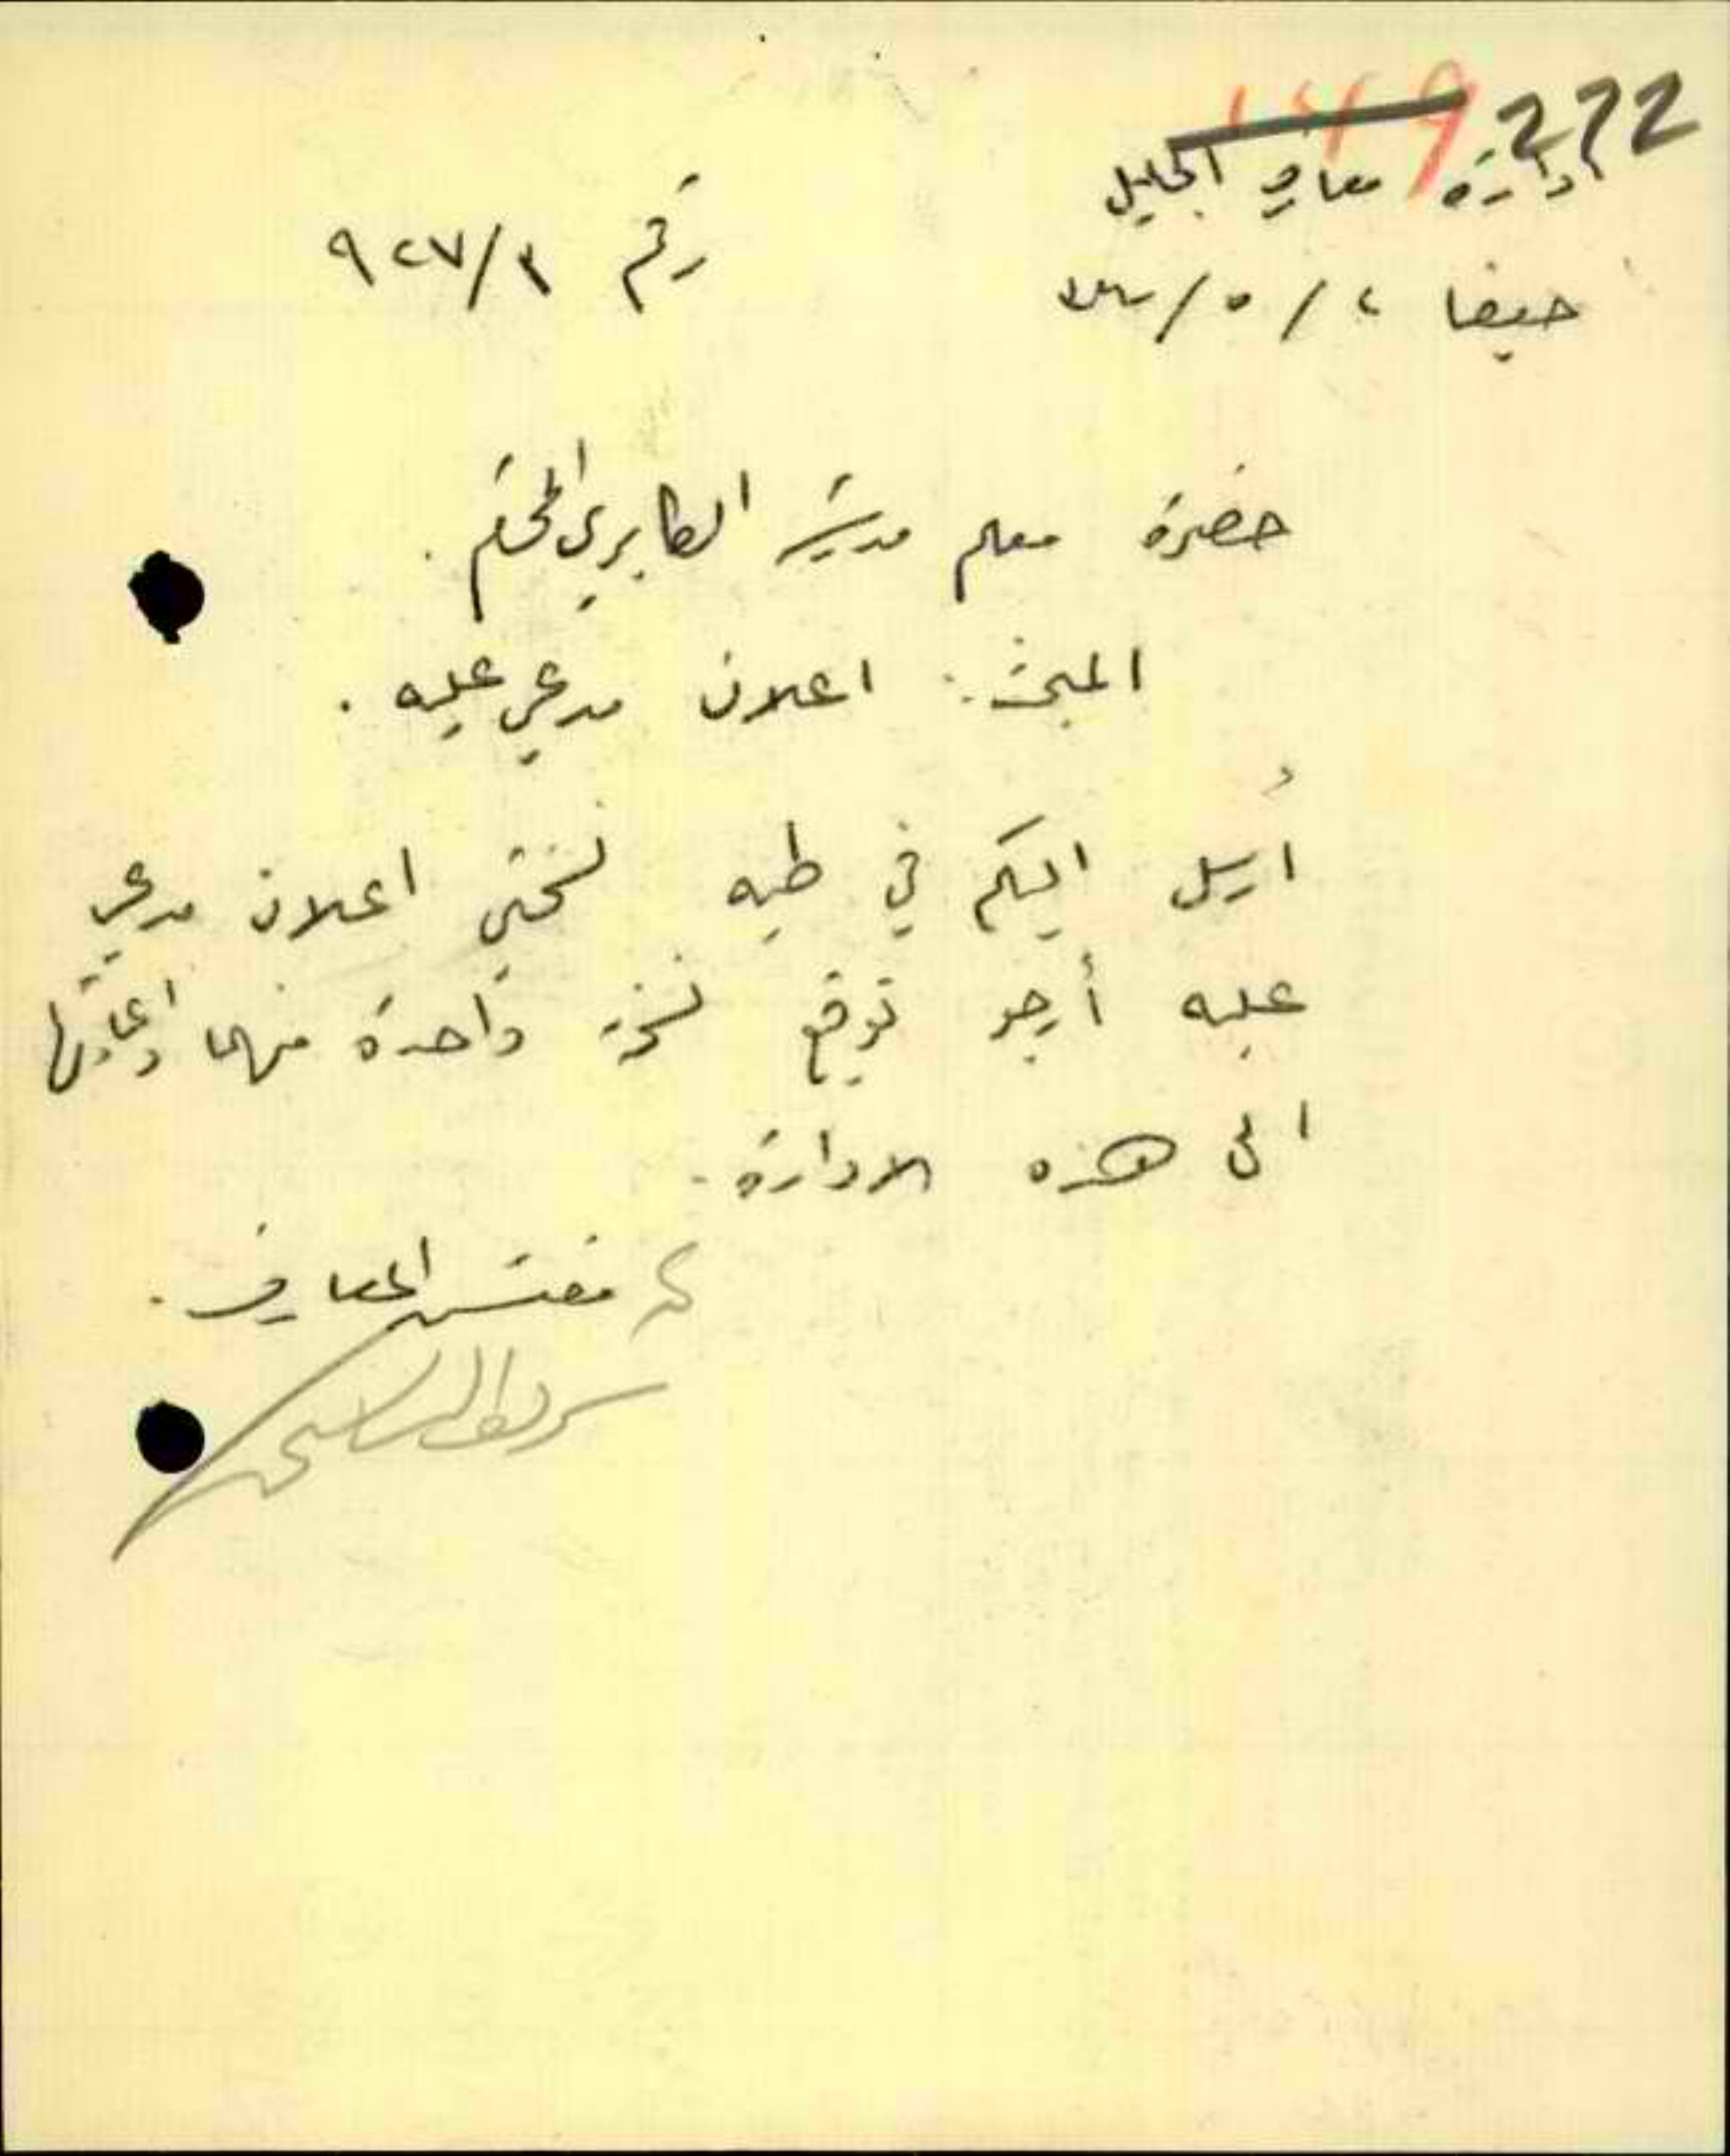 272
ادارة معارف الجليل
حيفا ٢ / ٥ /
رقم ٩٢٧/٣
حضرة معلم مدرسة الكابري المحترم .
المبحث : اعلان مدعى عليه .
أرسل اليكم في طيه نسختي اعلان مدعى
عليه أرجو توقيع نسخة واحدة منهما واعادتها
الى هذه الادارة .
مفتش المعارف .